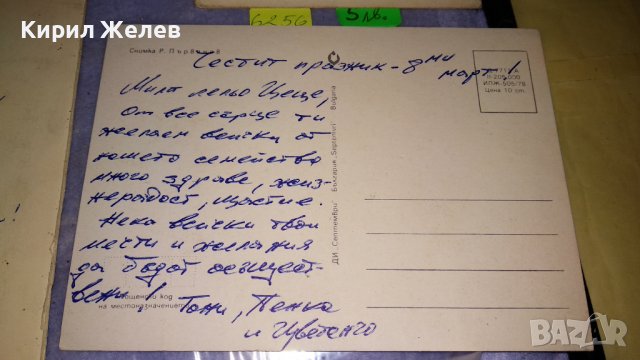 Кирил Желев
6256
5 лв.
Снимка Р. Първанов
Честит празник - 8ми
март!
И-206 000
ИПЖ-505/78
Цена 10 ст.
Мила лельо Цеце,
От все сърце ти
желаем всички от
нашето семейство
много здраве, жиз-
нерадост, щастие.
Нека всички твои
мечти и желания
да бъдат осъщест-
вени!
Тони, Пенка
и Цветанчо
Пощенски код
на местоназначението
ДИ „Септември“ България „Septemvri“ Bulgaria
BAZAR
bg